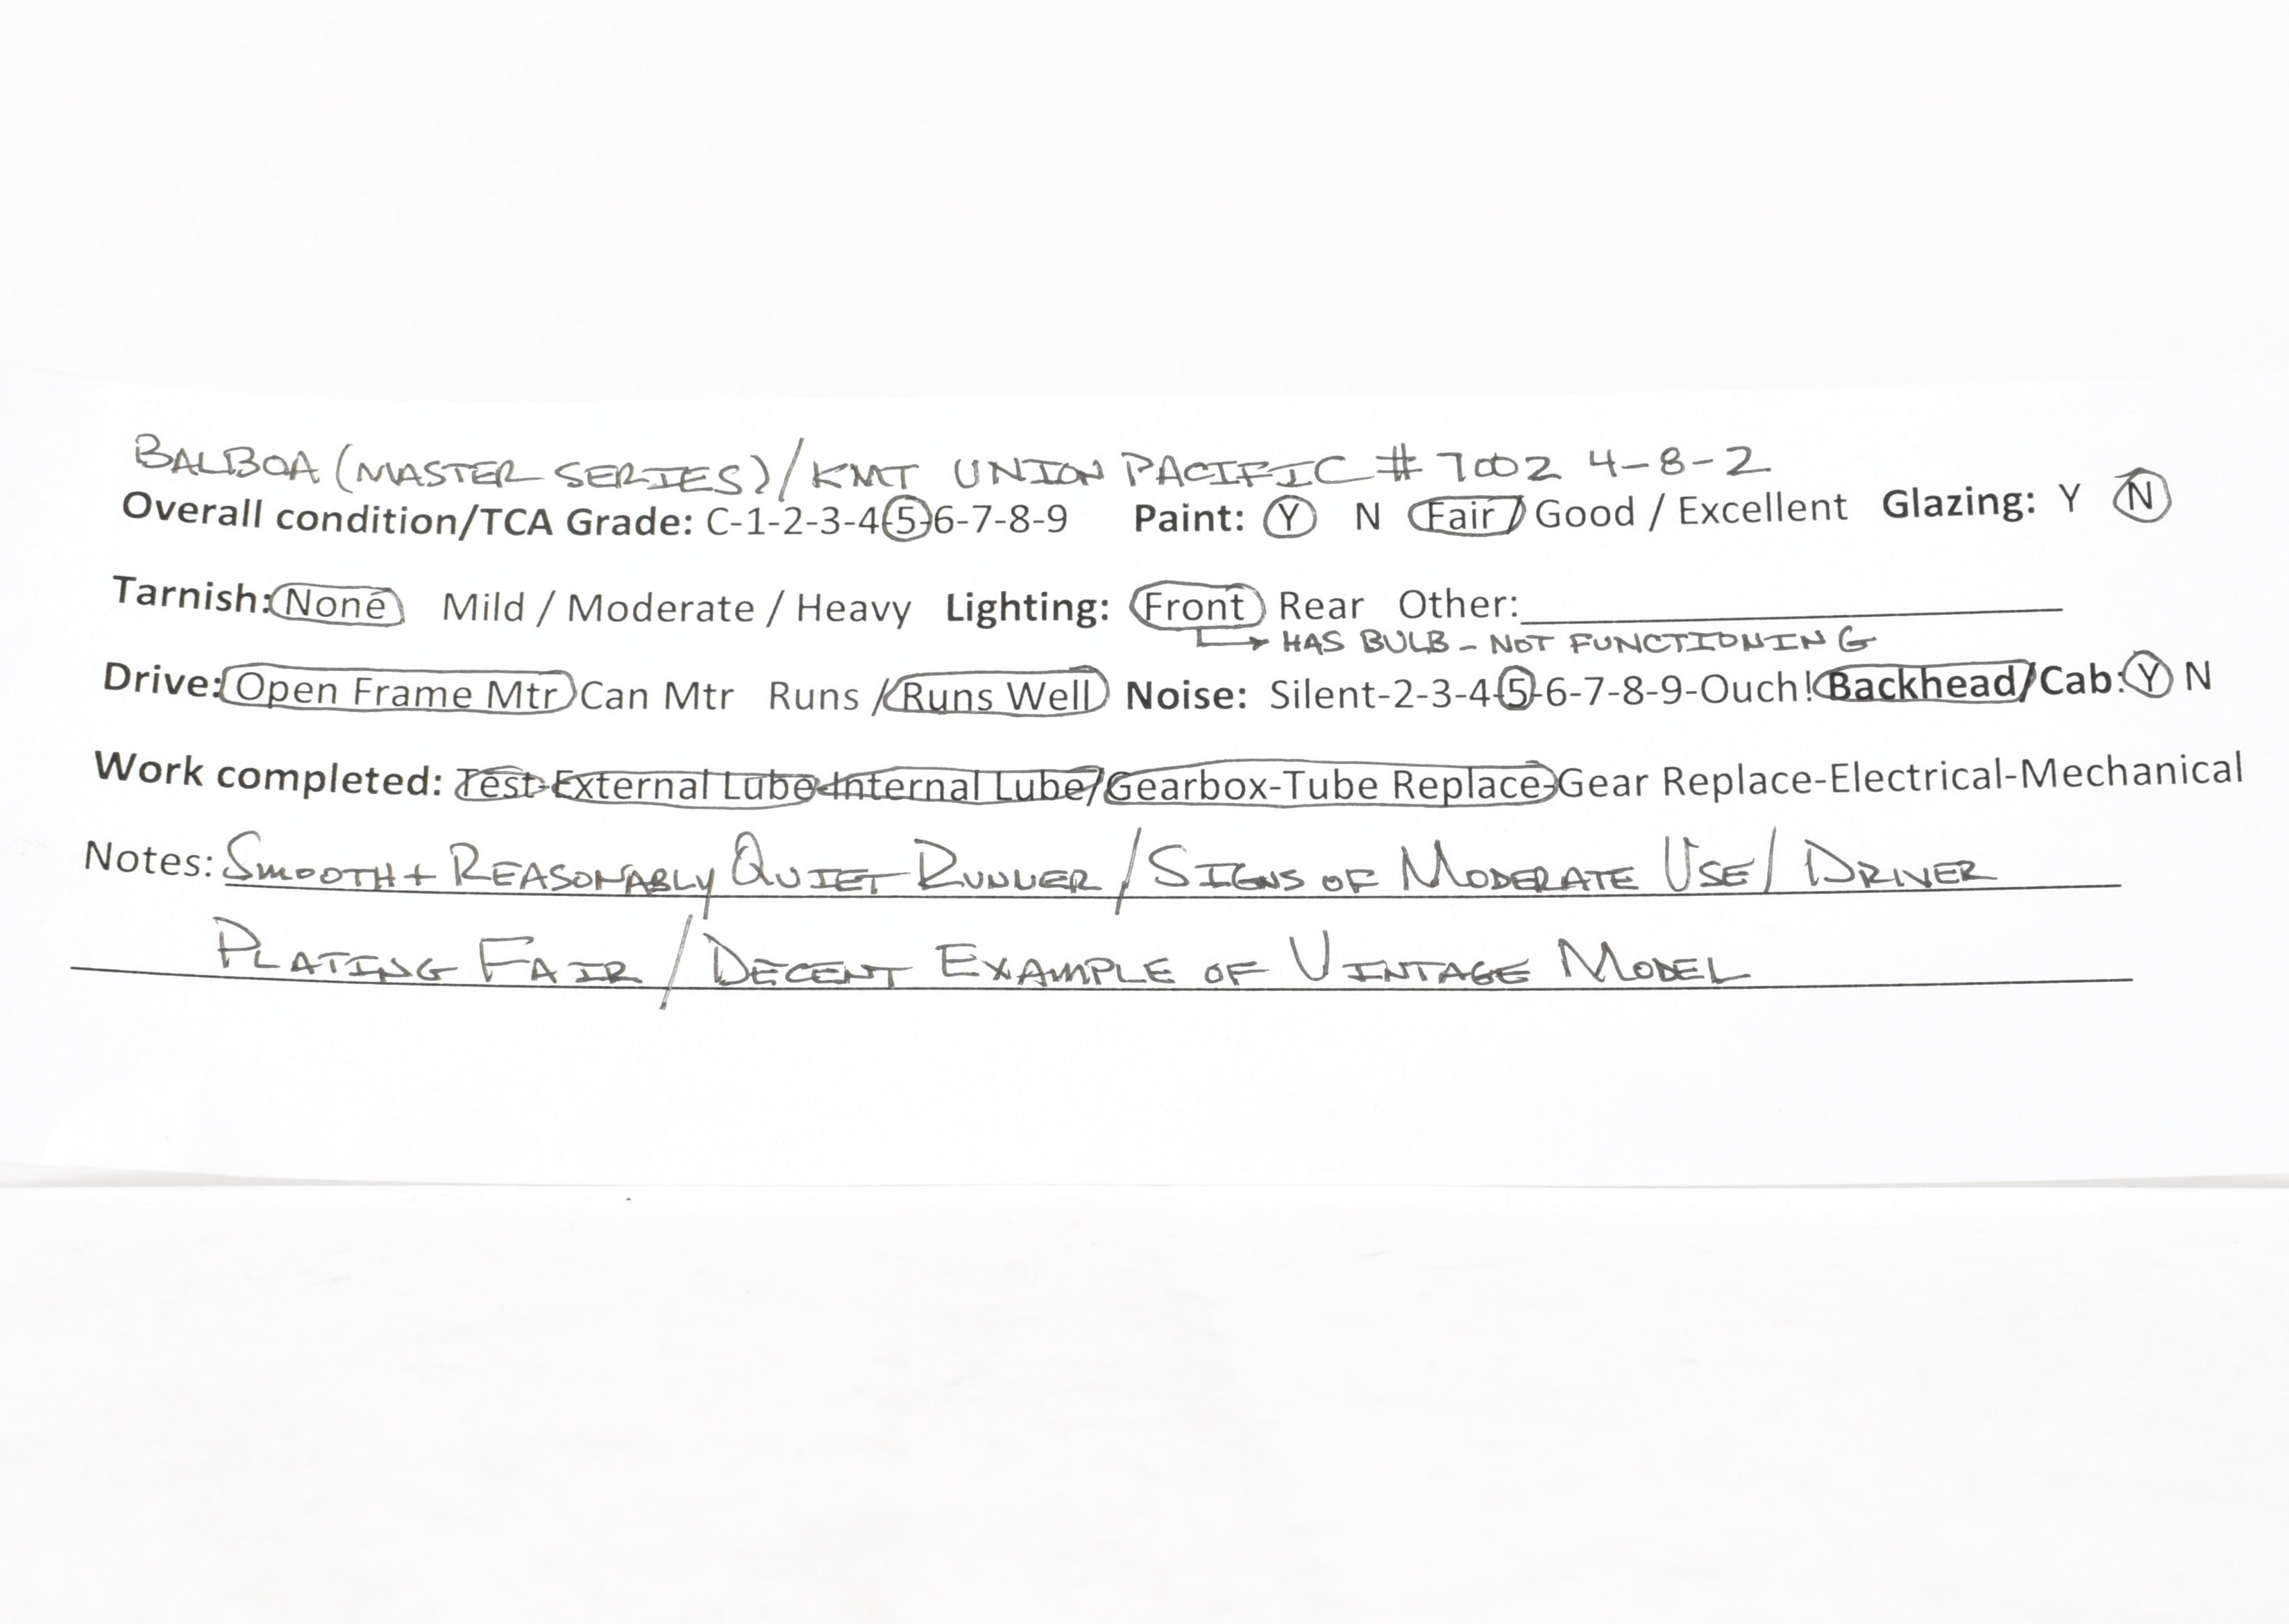 BALBOA (MASTER SERIES) / KMT UNION PACIFIC # 7002 4-8-2
Overall condition/TCA Grade: C-1-2-3-4-5-6-7-8-9 Paint: Y N Fair / Good / Excellent Glazing: Y N
Tarnish: None Mild / Moderate / Heavy Lighting: Front Rear Other:
HAS BULB - NOT FUNCTIONING
Drive: Open Frame Mtr Can Mtr Runs / Runs Well Noise: Silent-2-3-4-5-6-7-8-9-Ouch! Backhead/Cab: Y N
Work completed: Test-External Lube-Internal Lube/Gearbox-Tube Replace-Gear Replace-Electrical-Mechanical
Notes: SMOOTH + REASONABLY QUIET RUNNER / SIGNS OF MODERATE USE / DRIVER
PLATING FAIR / DECENT EXAMPLE OF VINTAGE MODEL